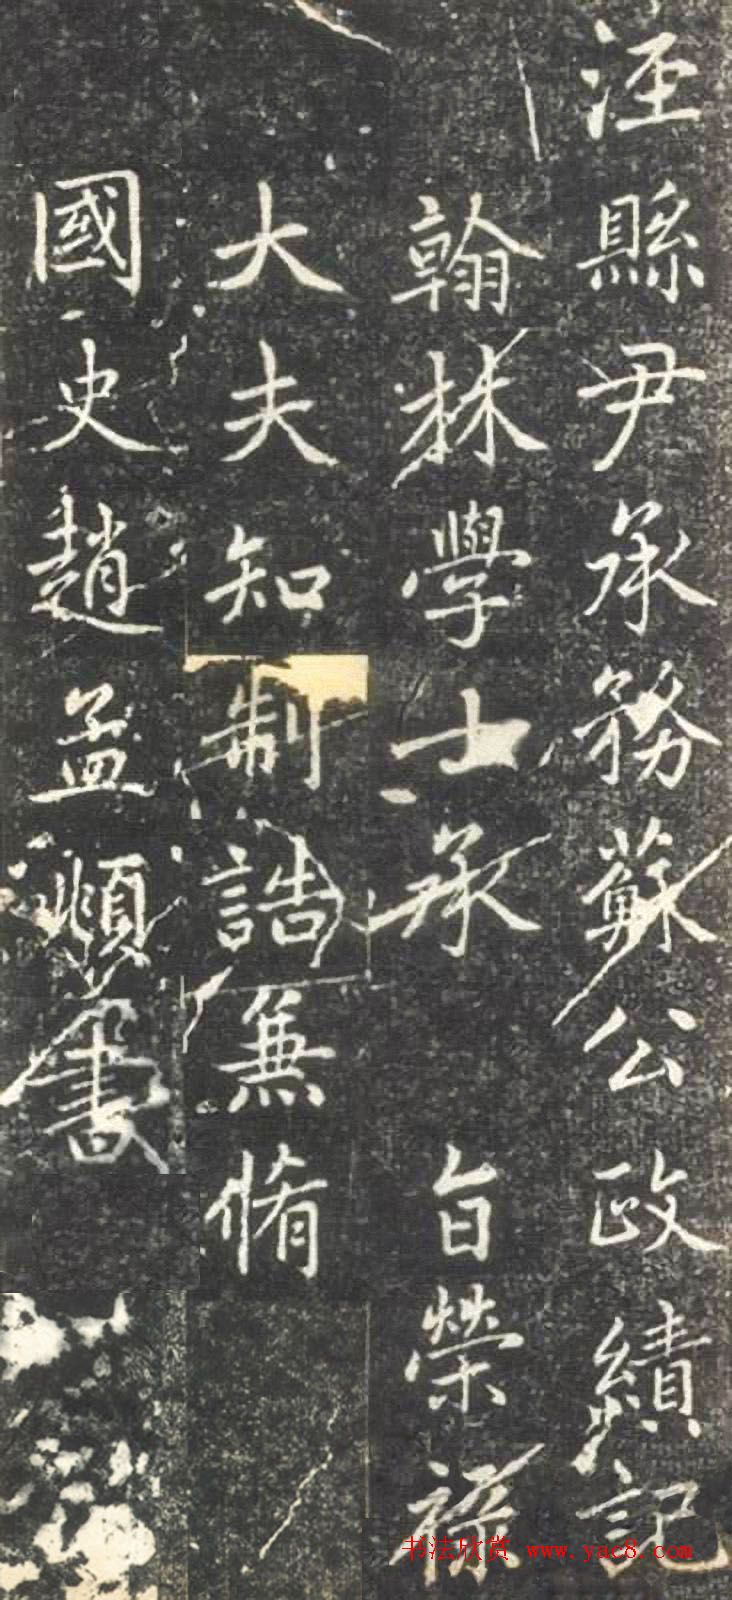 涇縣尹承務蘇公政績記
翰林學士承 旨榮祿
大夫知制誥兼脩
國史趙孟頫書
书法欣赏 www.yac8.com